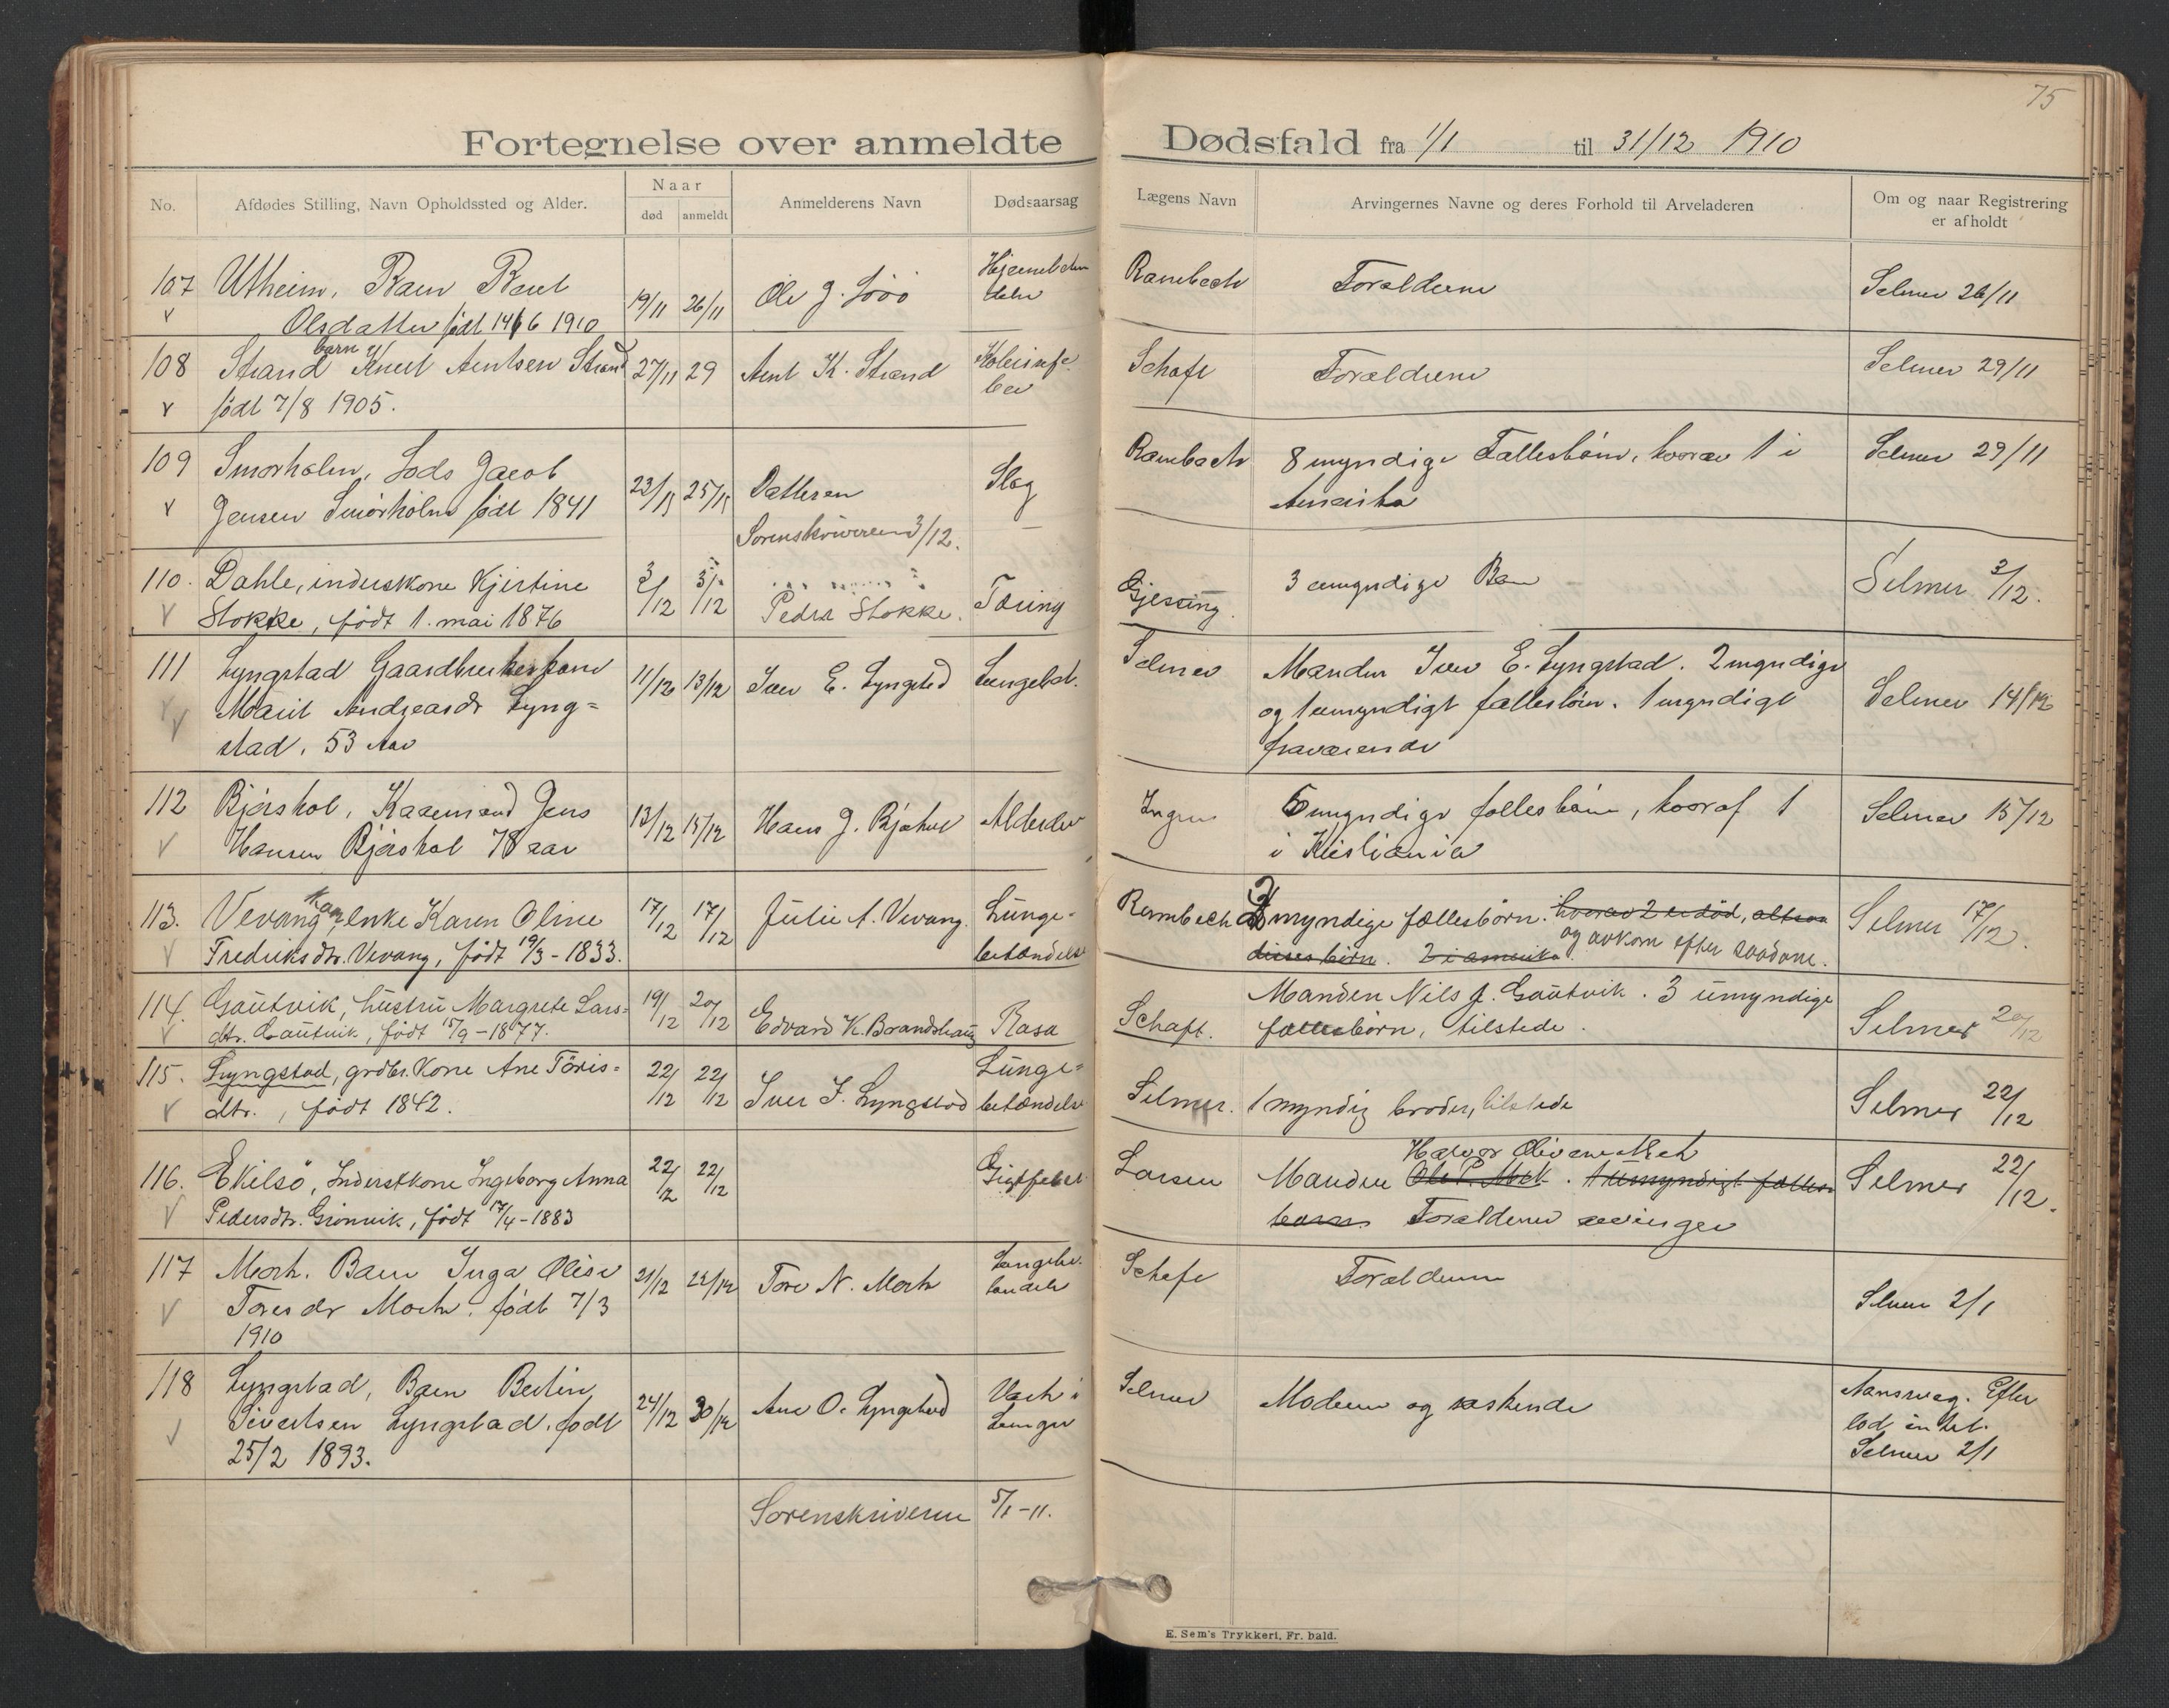 75
Fortegnelse over anmeldte Dødsfald fra 1/1 til 31/12 1910
No.
Afdødes Stilling, Navn Opholdssted og Alder.
Naar
død
anmeldt
Anmelderens Navn
Dødsaarsag
Lægens Navn
Arvingernes Navne og deres Forhold til Arveladeren
Om og naar Registrering
er afholdt
107 Utheim, Barn Berit 19/11 26/11 Ole J. Foraldrene Selmer 26/11
Olsdatter født 14/6 1910
108 Strand barn Knut Arntsen Strand 27/11 29 Arnt K. Strand Schaft Foraldrene Selmer 29/11
født 7/8 1905.
109 Smørholm, Lods Jacob 23/11 25/11 Datteren Slag 8 myndige Fællesbørn, hvorav 1 i Selmer 29/11
Jensen Smørholm født 1841 Amerika
Sorenskriveren 3/12.
110. Dahle, inderstkone Kjirstine 3/12 Gjessing. 3 umyndige Barn Selmer 3/12.
Stokke, født 1. mai 1876 Peder Stokke. Tæring
111 Lyngstad Gaardbrukerkone 11/12 13/12 Iver E. Lyngstad Lungebet. Selmer Manden Iver E. Lyngstad. 2 myndige Selmer 14/12
Marit Andreasdr Lyng= og 1 umyndigt fællesbørn. 1 myndigt
stad, 53 Aar fraværende
112 Bjørshol, Kaarmand Jens 13/12 15/12 Hans J. Bjøshol Alderdom 6 myndige fællesbørn, hvoraf 1 Selmer 15/12
Hansen Bjørshol 78 aar i Kristiania
113. Vevang, enke Karen Oline 17/12 17/12 Julie A. Vevang. Lunge- Rambech 3 myndige fællesbörn. hvorav 2 er død, Selmer 17/12.
Fredriksdtr. Vevang, født 19/3-1833. betændelse disses börn. 2 i amerika og avkom efter saadane.
114. Gautvik, hustru Margrete Lars= 19/12 20/12 Edvard K. Brandshaug Rosa Schaft. Manden Nils J. Gautvik. 3 umyndige Selmer 20/12
dtr. Gautvik, født 15/9-1877. fællesbörn, tilstede.
115. Lyngstad, grdbr. Kone Ane Töris= 22/12 22/12 Iver I. Lyngstad Lunge= Selmer. 1 myndig broder, tilstede Selmer 22/12
dtr., født 1842. betændelse
116. Ekilsö, Inderstkone Ingeborg Anna 22/12 22/12 Gigtfeber Larsen Manden Ole P. Mork. 1 umyndigt fælles= Selmer 22/12.
Pedersdtr. Grönvik, født 17/4-1883 barn. Foraldrene arvinger
117 Mork. Barn Inga Olise 21/12 22/12 Tore N. Mork Schaft Foraldrene Selmer 2/1
Toresdr Mork. født 7/3
1910
118 Lyngstad, Barn Bertin 24/12 30/12 Ane O. Lyngstad Verk i Selmer Moderen og søskende Efter
Sivertsen Lyngstad. født Lunger lod intet.
25/2 1893. Selmer 2/1
Sorenskriveren 5/1-11.
E. Sem's Trykkeri, Fr. hald.